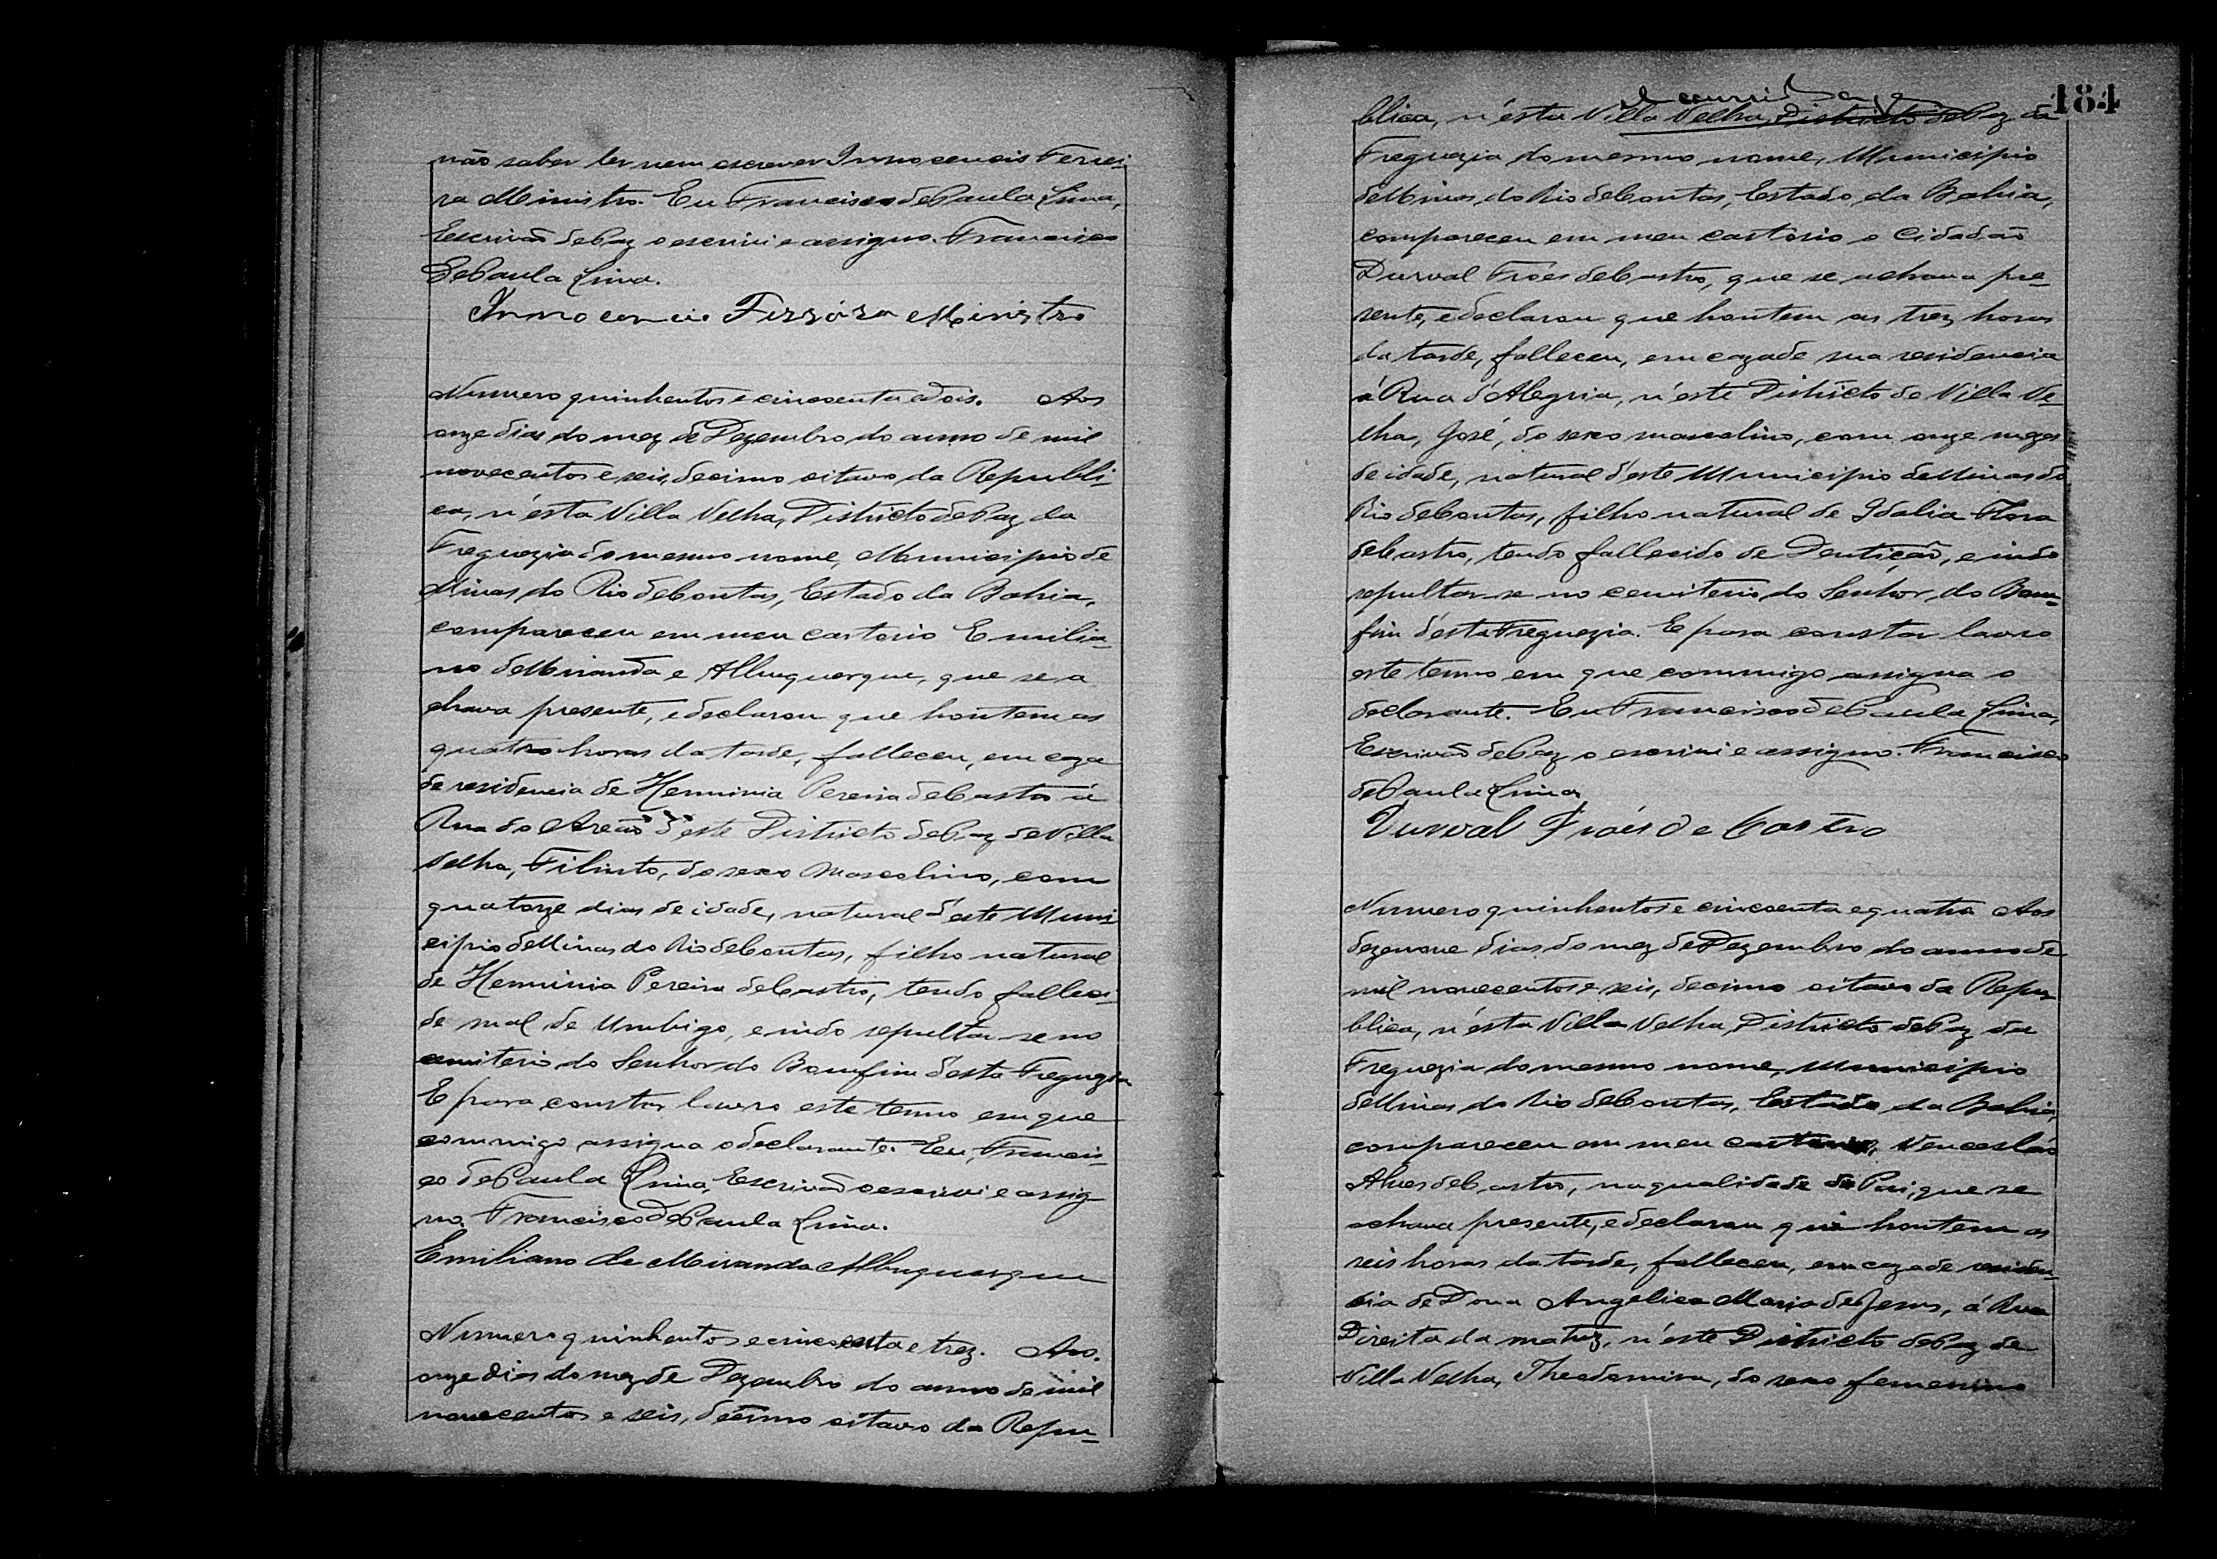 não saber ler nem escrever Innocencio Ferrei-
ra Ministro. Eu Francisco de Paula Lima,
Escrivão de Paz o escrivi e assigno. Francisco
de Paula Lima.
Innocencio Ferrera Ministro
Numero quinhentos e cincoenta e dois. Aos
onze dias do mez de Dezembro do anno de mil
novecentos e seis, decimo oitavo da Republi-
ca, n'esta Villa Velha, Districto de Paz da
Freguezia do mesmo nome, Municipio de
Minas do Rio de Contas, Estado da Bahia,
compareceu em meu cartorio Emilia-
no de Miranda e Albuquerque, que se a
chava presente, e declarou que hontem as
quatro horas da tarde, falleceu, em caza
de residencia de Herminia Pereira de Castro á
Rua do Areão d'este Districto de Paz de Villa
Velha, Filinto, do sexo Mascolino, com
quatorze dias de idade, natural d'este Muni
cipio de Minas do Rio de Contas, filho natural
de Herminia Pereira de Castro, tendo falleci-
do mal de Umbigo, e indo sepultar-se no
cemiterio do Senhor do Bomfim d'esta Freguezia
E para constar lavro este termo em que
commigo assigna o declarante. Eu, Francis-
co de Paula Lima, Escrivão o escrivi e assig-
no. Francisco de Paula Lima.
Emiliano de Miranda Albuquerque
Numero quinhentos e cincoenta e trez. Aos.
onze dias do mez de Dezembro do anno de mil
novecentos e seis, decimo oitavo da Repu-
184
blica, n'esta Villa Velha, Districto de Paz da
Freguezia do mesmo nome, Municipio
de Minas do Rio de Contas, Estado da Bahia,
compareceu em meu cartorio o Cidadão
Durval Fróes de Castro, que se achava pre-
sente, e declarou que hontem as trez horas
da tarde, falleceu, em caza de sua residencia
á Rua d'Alegria, n'este Districto de Villa Ve-
lha, José, do sexo mascolino, com onze mezes
de idade, natural d'este Municipio de Minas do
Rio de Contas, filho natural de Idalia Flora
de Castro, tendo fallecido de Dentição, e indo
sepultar-se no cemiterio do Senhor do Bom-
fim d'esta Freguezia. E para constar lavro
este termo em que commigo assigna o
declarante. Eu Francisco de Paula Lima,
Escrivão de Paz o escrivi e assigno. Francisco
de Paula Lima
Durval Fróes de Castro
Numero quinhentos e cincoenta e quatro Aos
dezenove dias do mez de Dezembro do anno de
mil novecentos e seis, decimo oitavo da Repu
blica, n'esta Villa Velha, Districto de Paz da
Freguezia do mesmo nome, Municipio
de Minas do Rio de Contas, Estado da Bahia,
compareceu em meu cartorio, Venceslao
Alves de Castro, na qualidade de Pai, que se
achava presente, e declarou que hontem as
seis horas da tarde, falleceu, em caza de residen-
cia de Dona Angelica Maria de Jesus, á Rua
Direita da matriz, n'este Districto de Paz de
Villa Velha, Theodomira, do sexo femenino